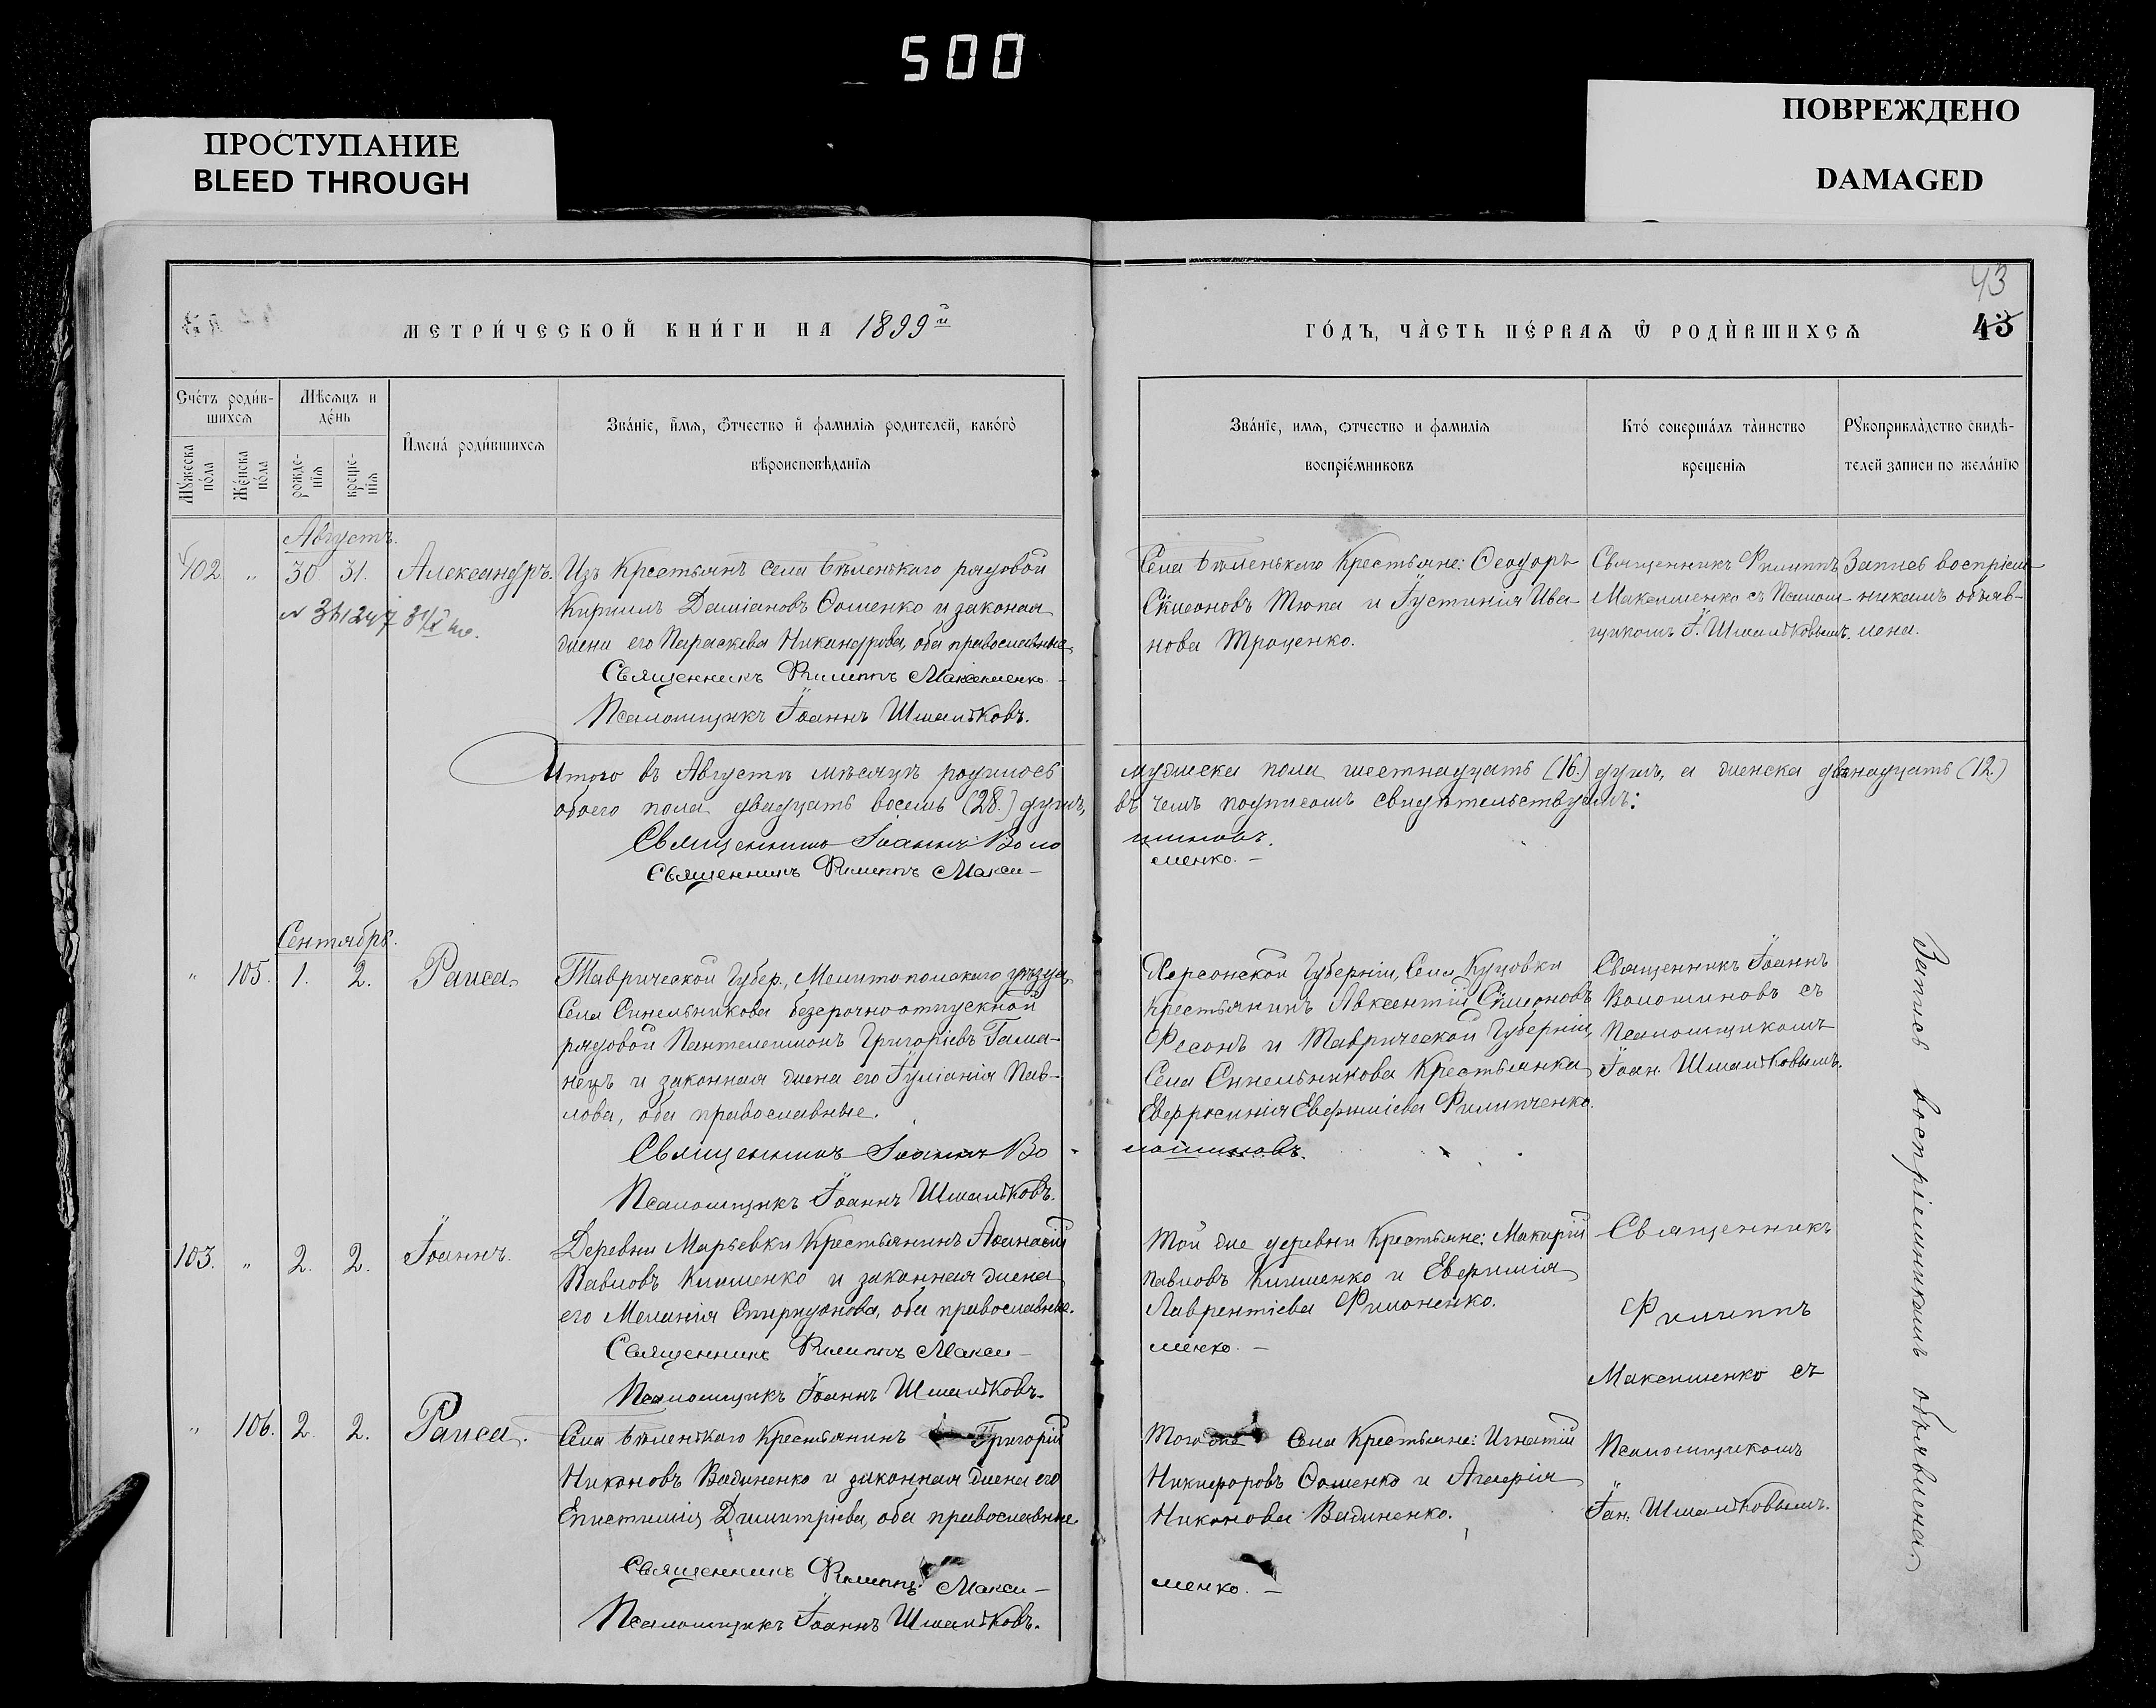 500
ПРОСТУПАНИЕ
BLEED THROUGH
ПОВРЕЖДЕНО
DAMAGED
43
43
МЕТРИ́ЧЕСКОЙ КНИ́ГИ НА 1899й
ГО́ДЪ, ЧА̀СТЬ ПЕ́РВАѦ Ѿ РОДЍВШИХСѦ
Сче́тъ роди́в-
шихсѧ
Мѣсѧцъ и
де́нь
Мꙋ́жеска
по́ла
Же́нска
по́ла
рожде-
нїѧ
креще-
нїѧ
И҆мена́ роди́вшихсѧ
Зва́нїе, и҆́мѧ, ѻ҆́тчество и҆ фамилїѧ родителей, како́гѡ
вѣроисповѣданїѧ
Зва́нїе, имѧ, ѻтчество и фамилїѧ
воспрїе́мниковъ
Кто́ соверша́лъ та̀инство
крещенїѧ
Рꙋкоприкла̀дство свидѣ-
телей записи по жела́нїю
Августъ.
102 " 30 31. Александръ. Изъ Крестьянъ села Бѣленькаго рядовой
Кириллъ Даміановъ Ѳоменко и законая
жена его Параскева Никандрова, оба православные
Священникъ Филиппъ Максименко.
Псаломщикъ Іоаннъ Шмальковъ.
Села Бѣленькаго Крестьяне: Ѳеодоръ
Сѵмеоновъ Тюпа и Іустинія Ива-
нова Троценко.
Священникъ Филиппъ
Максименко съ Псалом-
щикомъ І. Шмальковымъ.
Запись воспріем-
никамъ объяв-
лена.
Итого въ Августѣ мѣсяцѣ родилось мужеска пола шестнадцать (16.) душъ, а женска двѣнадцать (12.)
обоего пола двадцать восемь (28.) душъ, въ чемъ подписомъ свидѣтельствуемъ:
Священникъ Іоаннъ Воло
шиновъ.
Священникъ Филиппъ Макси-
менко. -
Сентябрь.
" 105. 1. 2. Раиса. Таврической Губер., Мелитопольскаго уѣзда,
Села Синельникова безсрочноотпускной
рядовой Пантелеимонъ Григоріевъ Гама-
нецъ и законная жена его Іуліанія Пав-
лова, оба православные.
Священникъ Іоаннъ Во-
лошиновъ.
Псаломщикъ Іоаннъ Шмальковъ.
Херсонской Губерніи, Села Куцовки
Крестьянинъ Авксентій Сѵмеоновъ
и Таврической Губерніи,
Села Синельникова Крестьянка
Евфросинія Филипченко.
Священникъ Іоаннъ
Волошиновъ съ
Псаломщикомъ
Іоан. Шмальковымъ.
Запись воспріемникамъ объявлена.
103. " 2. 2. Іоаннъ. Деревни Марьевки Крестьянинъ Аѳанасій
Павловъ Клименко и законная жена
его Меланія Спиридонова, оба православные.
Священникъ Филиппъ Макси-
менко. -
Псаломщикъ Іоаннъ Шмальковъ.
Той же деревни Крестьяне: Макарій
Павловъ Клименко и Евфимія
Лаврентіева Филоненко.
Священникъ
Филиппъ
Максименко съ
Псаломщикомъ
Іан. Шмальковымъ.
" 106. 2. 2. Раиса. Села Бѣленькаго Крестьянинъ Григорій
Никоновъ Бабиненко и законная жена его
Епистимія Димитріева, оба православные
Священникъ Филиппъ Макси-
менко. -
Псаломщикъ Іоаннъ Шмальковъ.
Того же Села Крестьяне: Игнатій
Никифоровъ Ѳоменко и Агафія
Никонова Бабиненко.